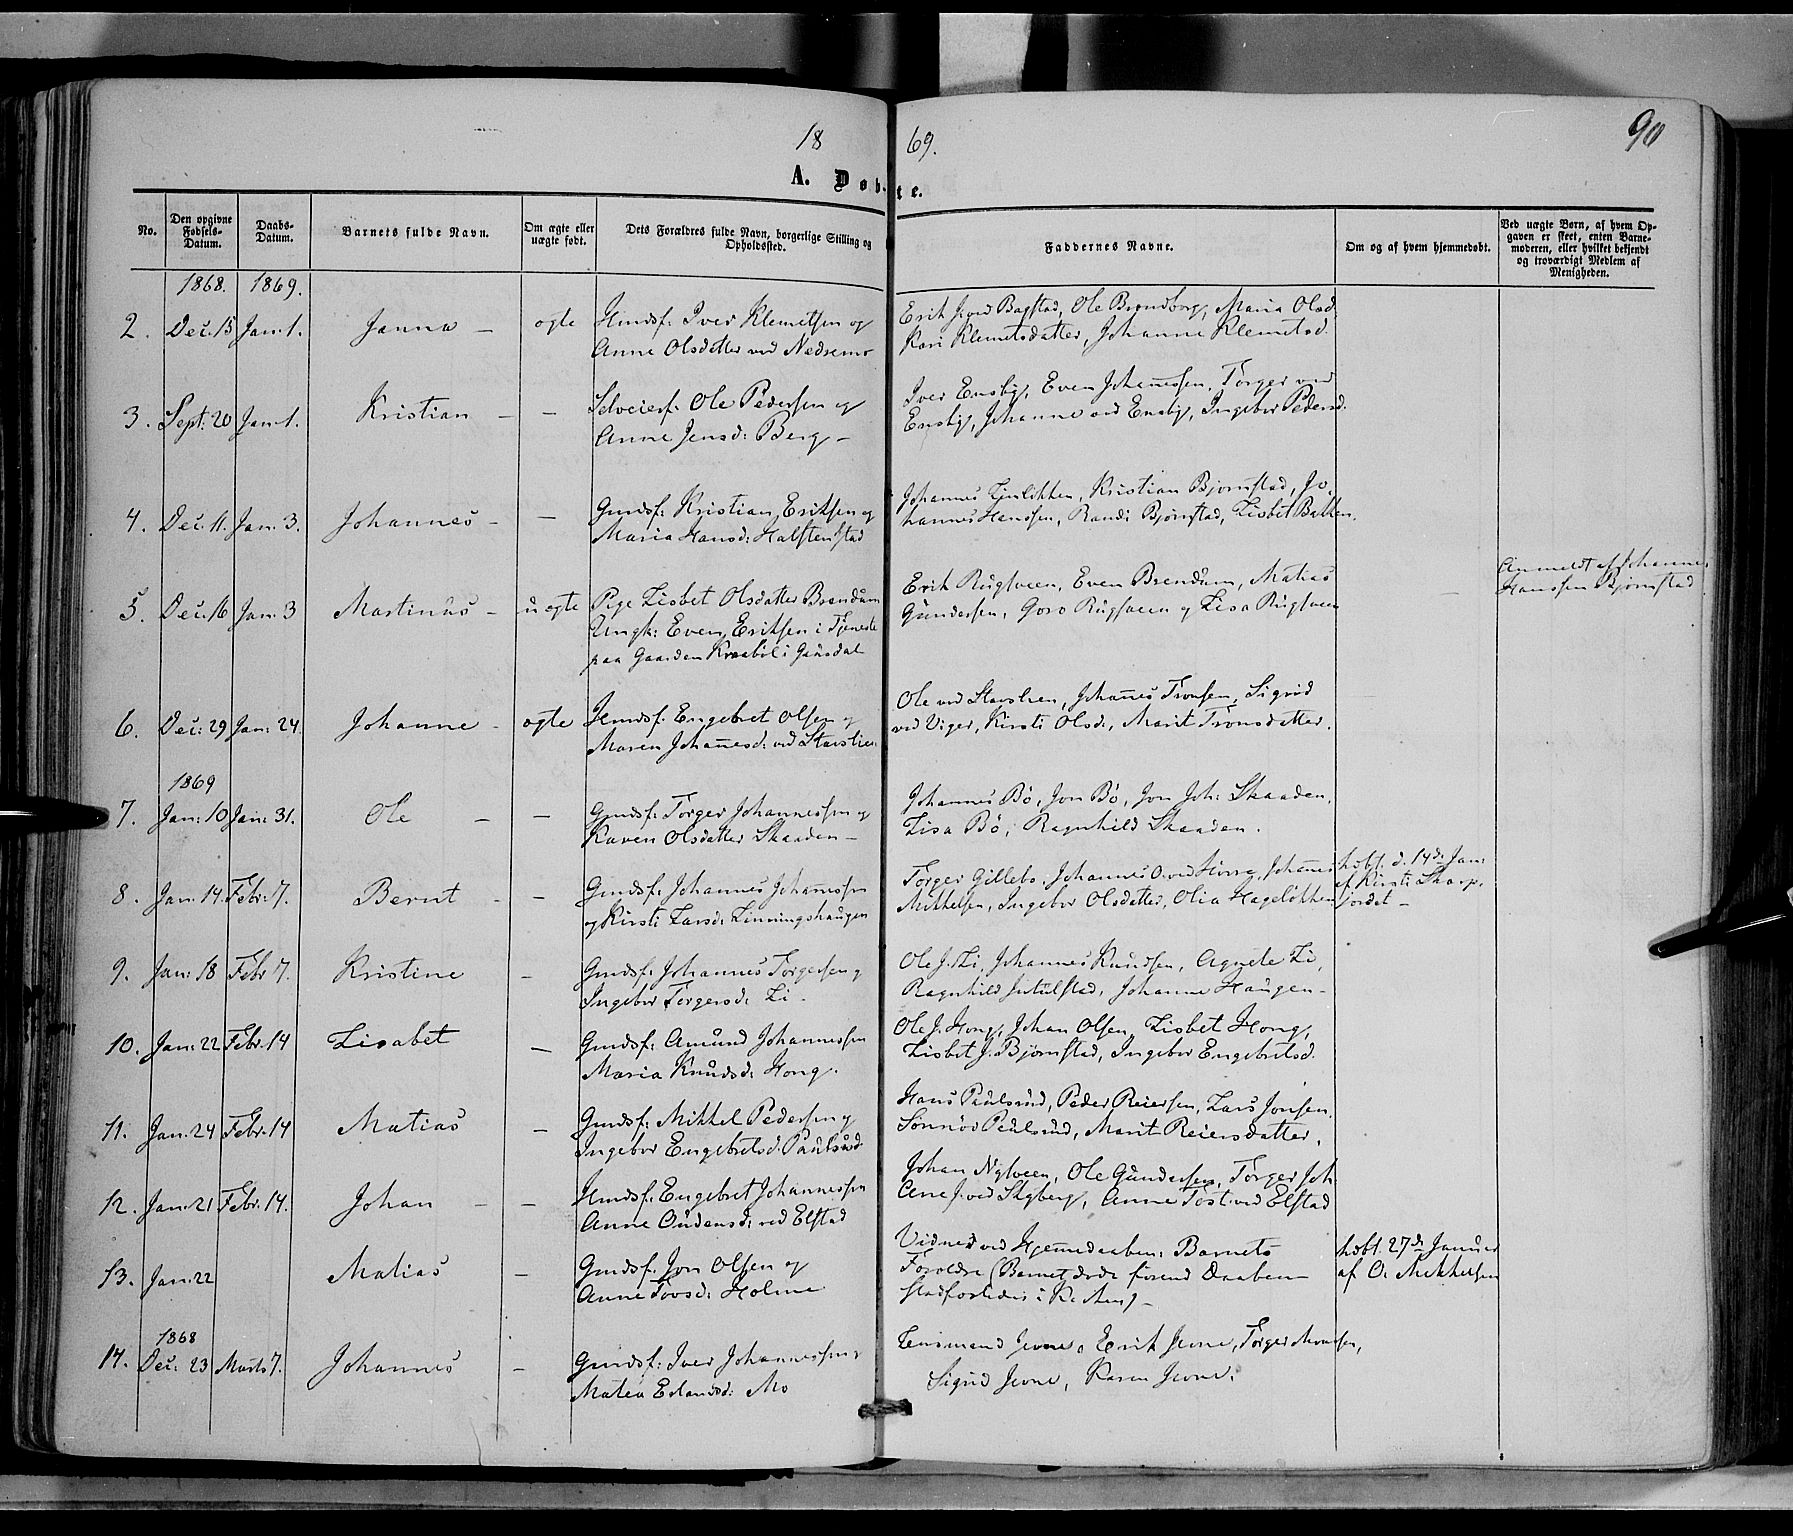 18 69.
90
A. Døbte.
No.
Den opgivne Fødsels-Datum.
Daabs-Datum.
Barnets fulde Navn.
Om ægte eller uægte født.
Dets Forældres fulde Navn, borgerlige Stilling og Opholdssted.
Faddernes Navne.
Om og af hvem hjemmedøbt.
Ved uægte Børn, af hvem Opgaven er skeet, enten Barnemoderen, eller hvilket bekjendt og troværdigt Medlem af Menigheden.
1868. 1869.
2. Dec: 15 Jan: 1. Janna – ægte Huusf: Iver Klemetsen og
Anne Olsdatter ved Nedremo
Erik Bagstad, Ole Brendborg, Maria Olsd.
Kari Klemetsdatter, Johanne Klemetsd.
3. Sept: 20 Jan: 1. Kristian – – Selveierf: Ole Pedersen og
Anne Jensd: Berg –
Iver Ensby, Even Johannesen, Torger ved
Ensby, Johanne ved Ensby, Ingebor Pedersd.
4. Dec: 11. Jan: 3. Johannes – – Gmdsf: Kristian Eriksen og
Maria Hansd: Halstenstad
Johannes Kristian Bjørnstad, Jo-
hannes Hanssen, Randi Bjørnstad, Lisbet Bakken.
5. Dec: 16 Jan: 3 Martinus – uægte Pige Lisbet Olsdatter Brendum
Ungk: Even Eriksen i Tjeneste
paa Gaarden Kraabøl i Gausdal
Erik Rugsveen, Even Brendum, Matias
Gundersen, Goro Rugsveen og Lisa Rugsveen
Anmeldt af Johannes
Hanssen Bjørnstad
6. Dec: 29 Jan: 24. Johanne – ægte Huusf: Engebret Olsen og
Maren Johannesd: ved Stavslien
Ole ved Stavslien, Johannes Tronsen, Sigrid
ved Viger, Kirsti Olsd:, Marit Tronsdatter.
1869
7. Jan: 10 Jan: 31. Ole – – Gmdsf: Torger Johannessen og
Karen Olsdatter Skaaden –
Johannes Bø, Jon Bø, Jon Joh: Skaaden,
Lisa Bø, Ragnhild Skaaden.
8. Jan: 14. Febr: 7. Bernt – – Gmdsf: Johannes Johannessen
og Kirsti Larsd: Linningshaugen
Torger Gillebo, Johannes O. ved Johannes
Mikkelsen, Ingebor Olsdatter, Olia Hageløkken
hdbt. d. 14d. Jan:
af Kirsti Skarp-
jordet –
9. Jan: 18 Febr 7. Kristine – Gmdsf: Johannes Torgersen og
Ingebor Torgersd: Li –
Ole J. Li, Johannes Knudsen, Agnete Li,
Ragnhild Jutulstad, Johanne Haugen –
10. Jan: 22 Febr: 14 Lisabet – Gmdsf: Amund Johannessen
Maria Knudsd: Hong.
Ole J. Hong, Johan Olsen, Lisbet Hong,
Lisbet J. Bjørnstad, Ingebor Engebretsd.
11. Jan: 24 Febr: 14 Matias – Gmdsf: Mikkel Pedersen og
Ingebor Engebretsd: Paulsrud
Hans Paulsrud, Peder Reiersen, Lars Jonsen,
Sønnøv Paulsrud, Marit Reiersdatter.
12. Jan: 21 Febr: 14. Johan – – Huusf: Engebret Johannessen
Anne Audensd: ved Elstad
Johan Nysveen, Ole Gundersen, Torger Joh
J. ved Skyberg, Anne Tost: ved Elstad
13. Jan: 22 Matias – Gmdsf: Jon Olsen og
Anne Tovsd: Holme
Vidner ved Hjemmedaaben: Barnets
Forældre (Barnet døde forend Daaben
stadfæstedes i Kirken) –
hdbt. 27d. Januar
af O. Mikkelsen
1868
14. Dec: 23 Marts 7. Johannes – Gmdsf: Iver Johannessen og
Matea Erlandsd: Mo
Lensmand Jevne, Erik Jevne, Torger
Sigrid Jevne, Karen Jevne.